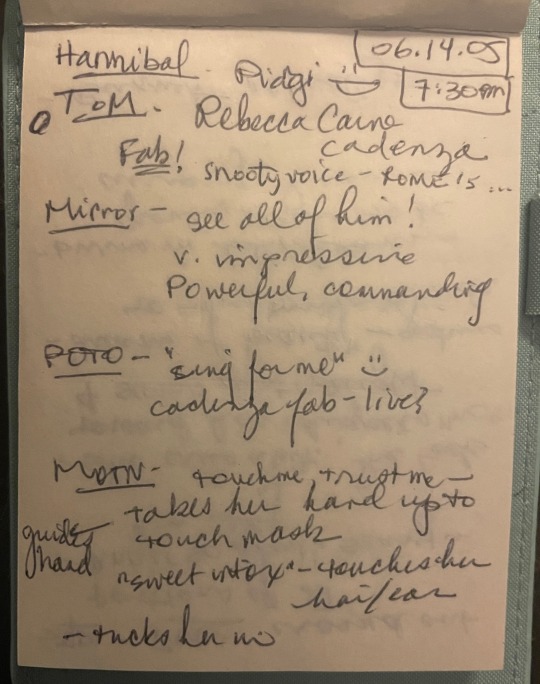 Hannibal. Pidgi :)
06.14.05
7:30pm
TOM. Rebecca Caine
cadenza
Fab! snooty voice - ROME is ...
Mirror - see all of him!
v. impressive
Powerful, commanding
POTO - "sing for me" :)
cadenza fab - live?
MOTN - touch me, trust me -
takes her hand up to
touch mask
guides
hand
"sweet intox" - touches her
hair/ear
- tucks her in